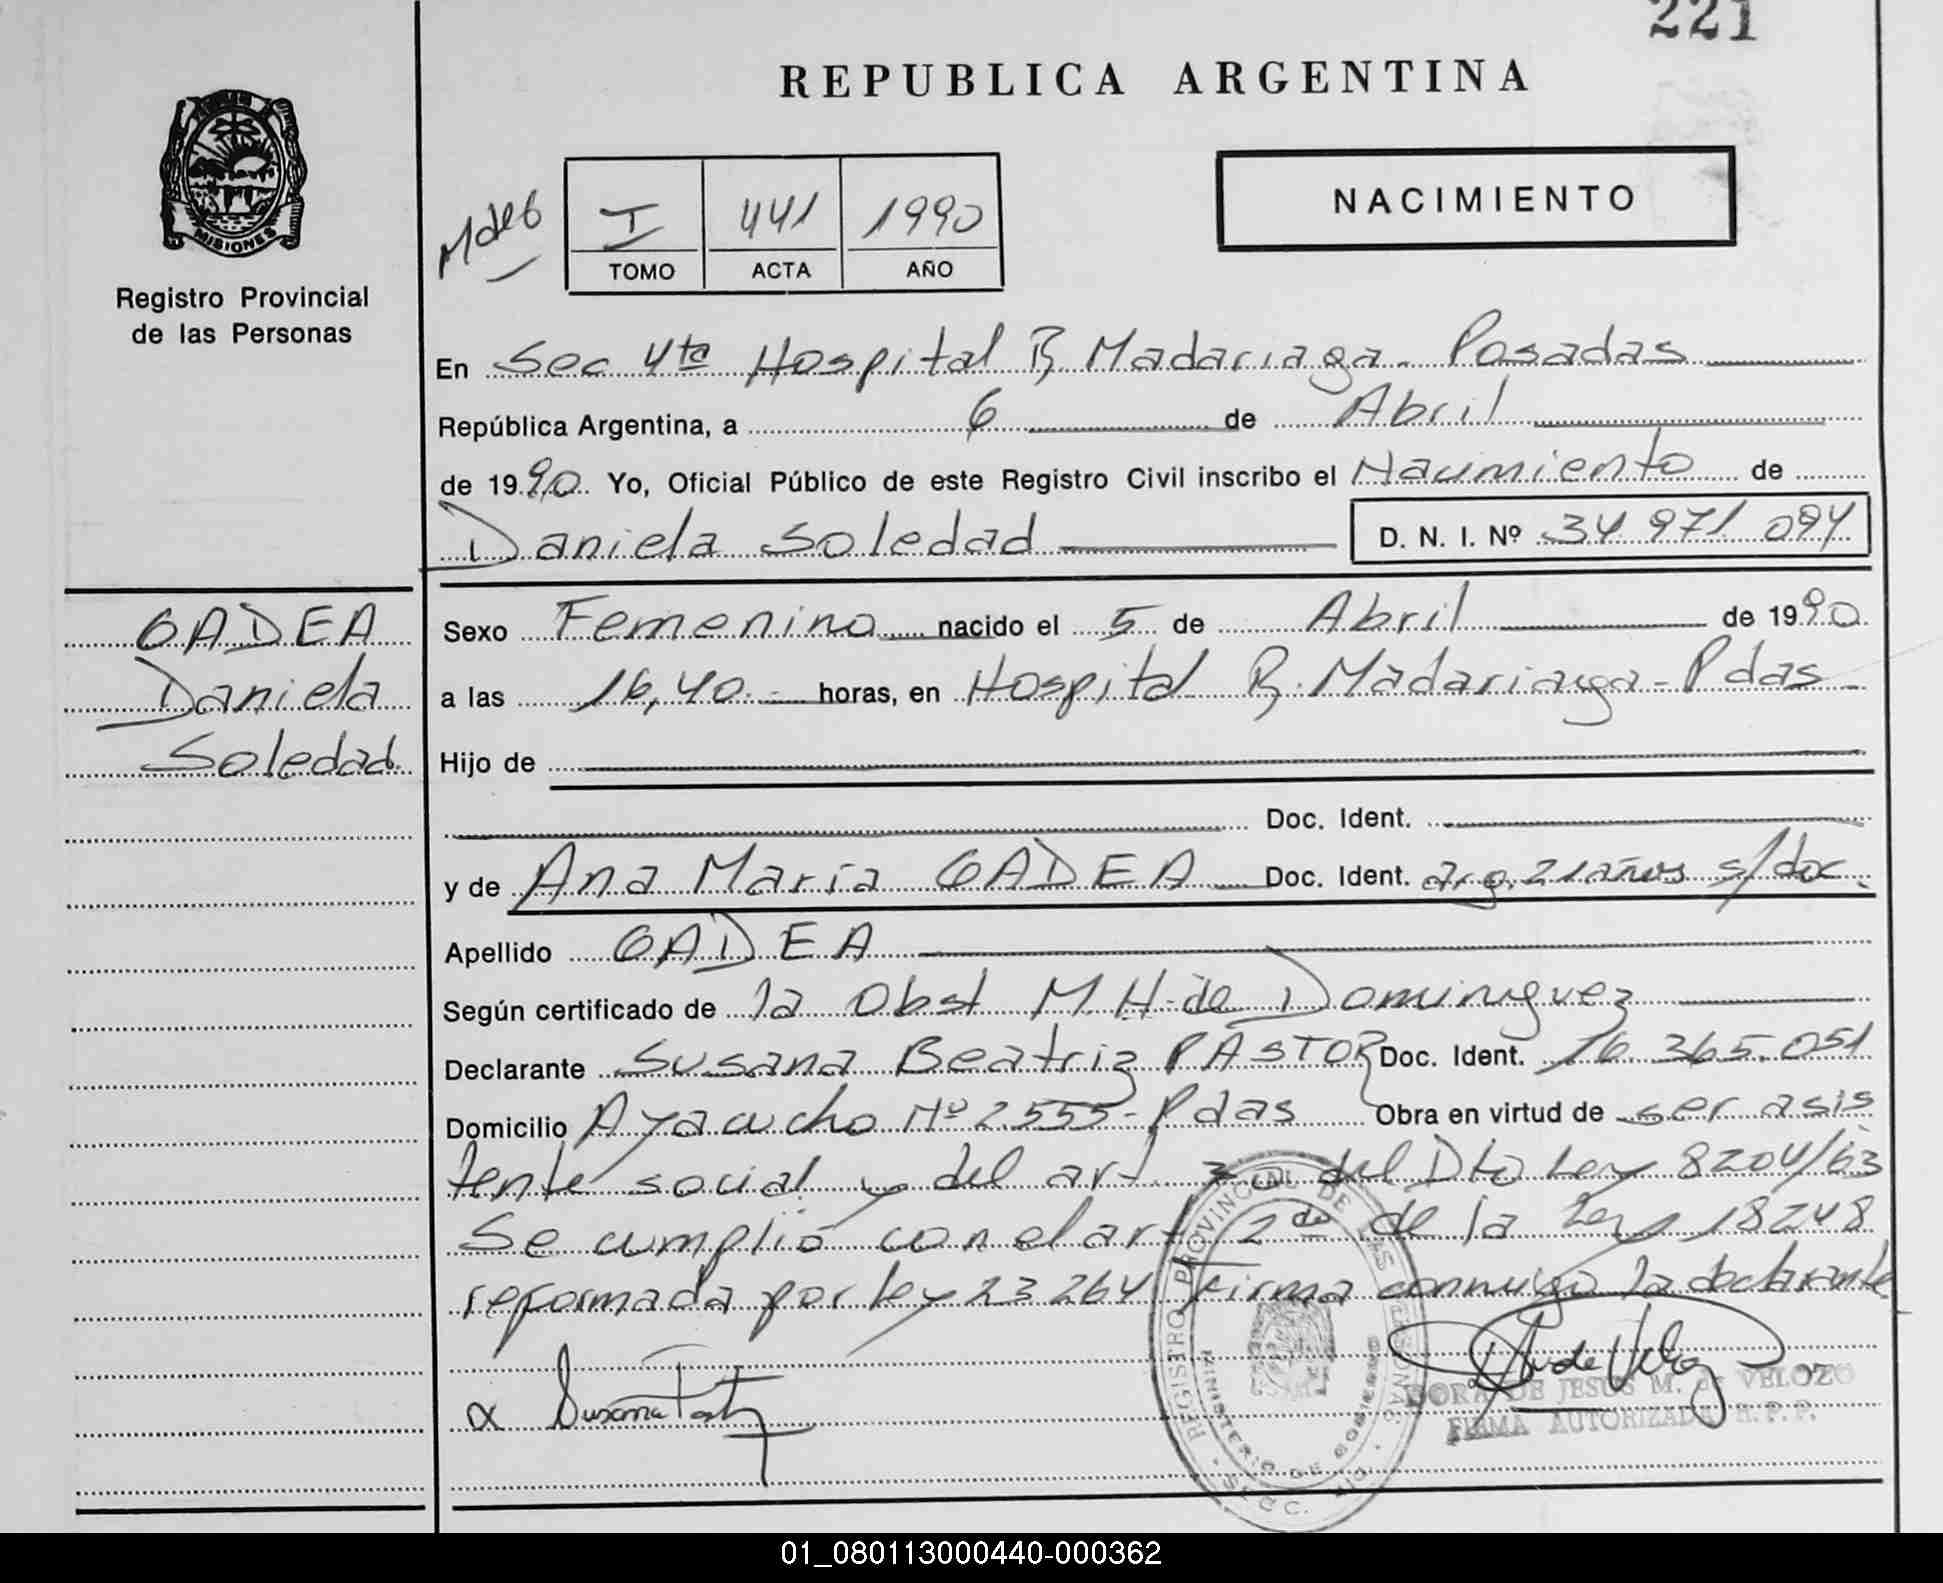 221
REPUBLICA ARGENTINA
MISIONES
Registro Provincial
de las Personas
I 441 1990
TOMO ACTA AÑO
NACIMIENTO
En Sec 4ta Hospital R Madariaga - Posadas
República Argentina, a 6 de Abril
de 1990 Yo, Oficial Público de este Registro Civil inscribo el Nacimiento de
Daniela Soledad D. N. I. Nº 34 971 094
GADEA
Daniela
Soledad.
Sexo Femenino nacido el 5 de Abril de 1990
a las 16,40.- horas, en Hospital R. Madariaga - Pdas -
Hijo de
Doc. Ident.
y de Ana Maria GADEA Doc. Ident. arg. 21 años s/doc.
Apellido GADEA
Según certificado de la Obst M. H. de Dominguez
Declarante Susana Beatriz PASTOR Doc. Ident. 16.365.051
Domicilio Ayacucho Nº 2555 - Pdas Obra en virtud de ser asis
tente social y del art. 30 del Dto Ley 8204/63
Se cumplió con el art 2do de la Ley 18248
reformada por ley 23264 firma conmigo la declarante
REGISTRO PROVINCIAL DE LAS PERSONAS
MINISTERIO DE GOBIERNO
DORA DE JESUS M. de VELOZO
FIRMA AUTORIZADA R. P. P.
01_080113000440-000362